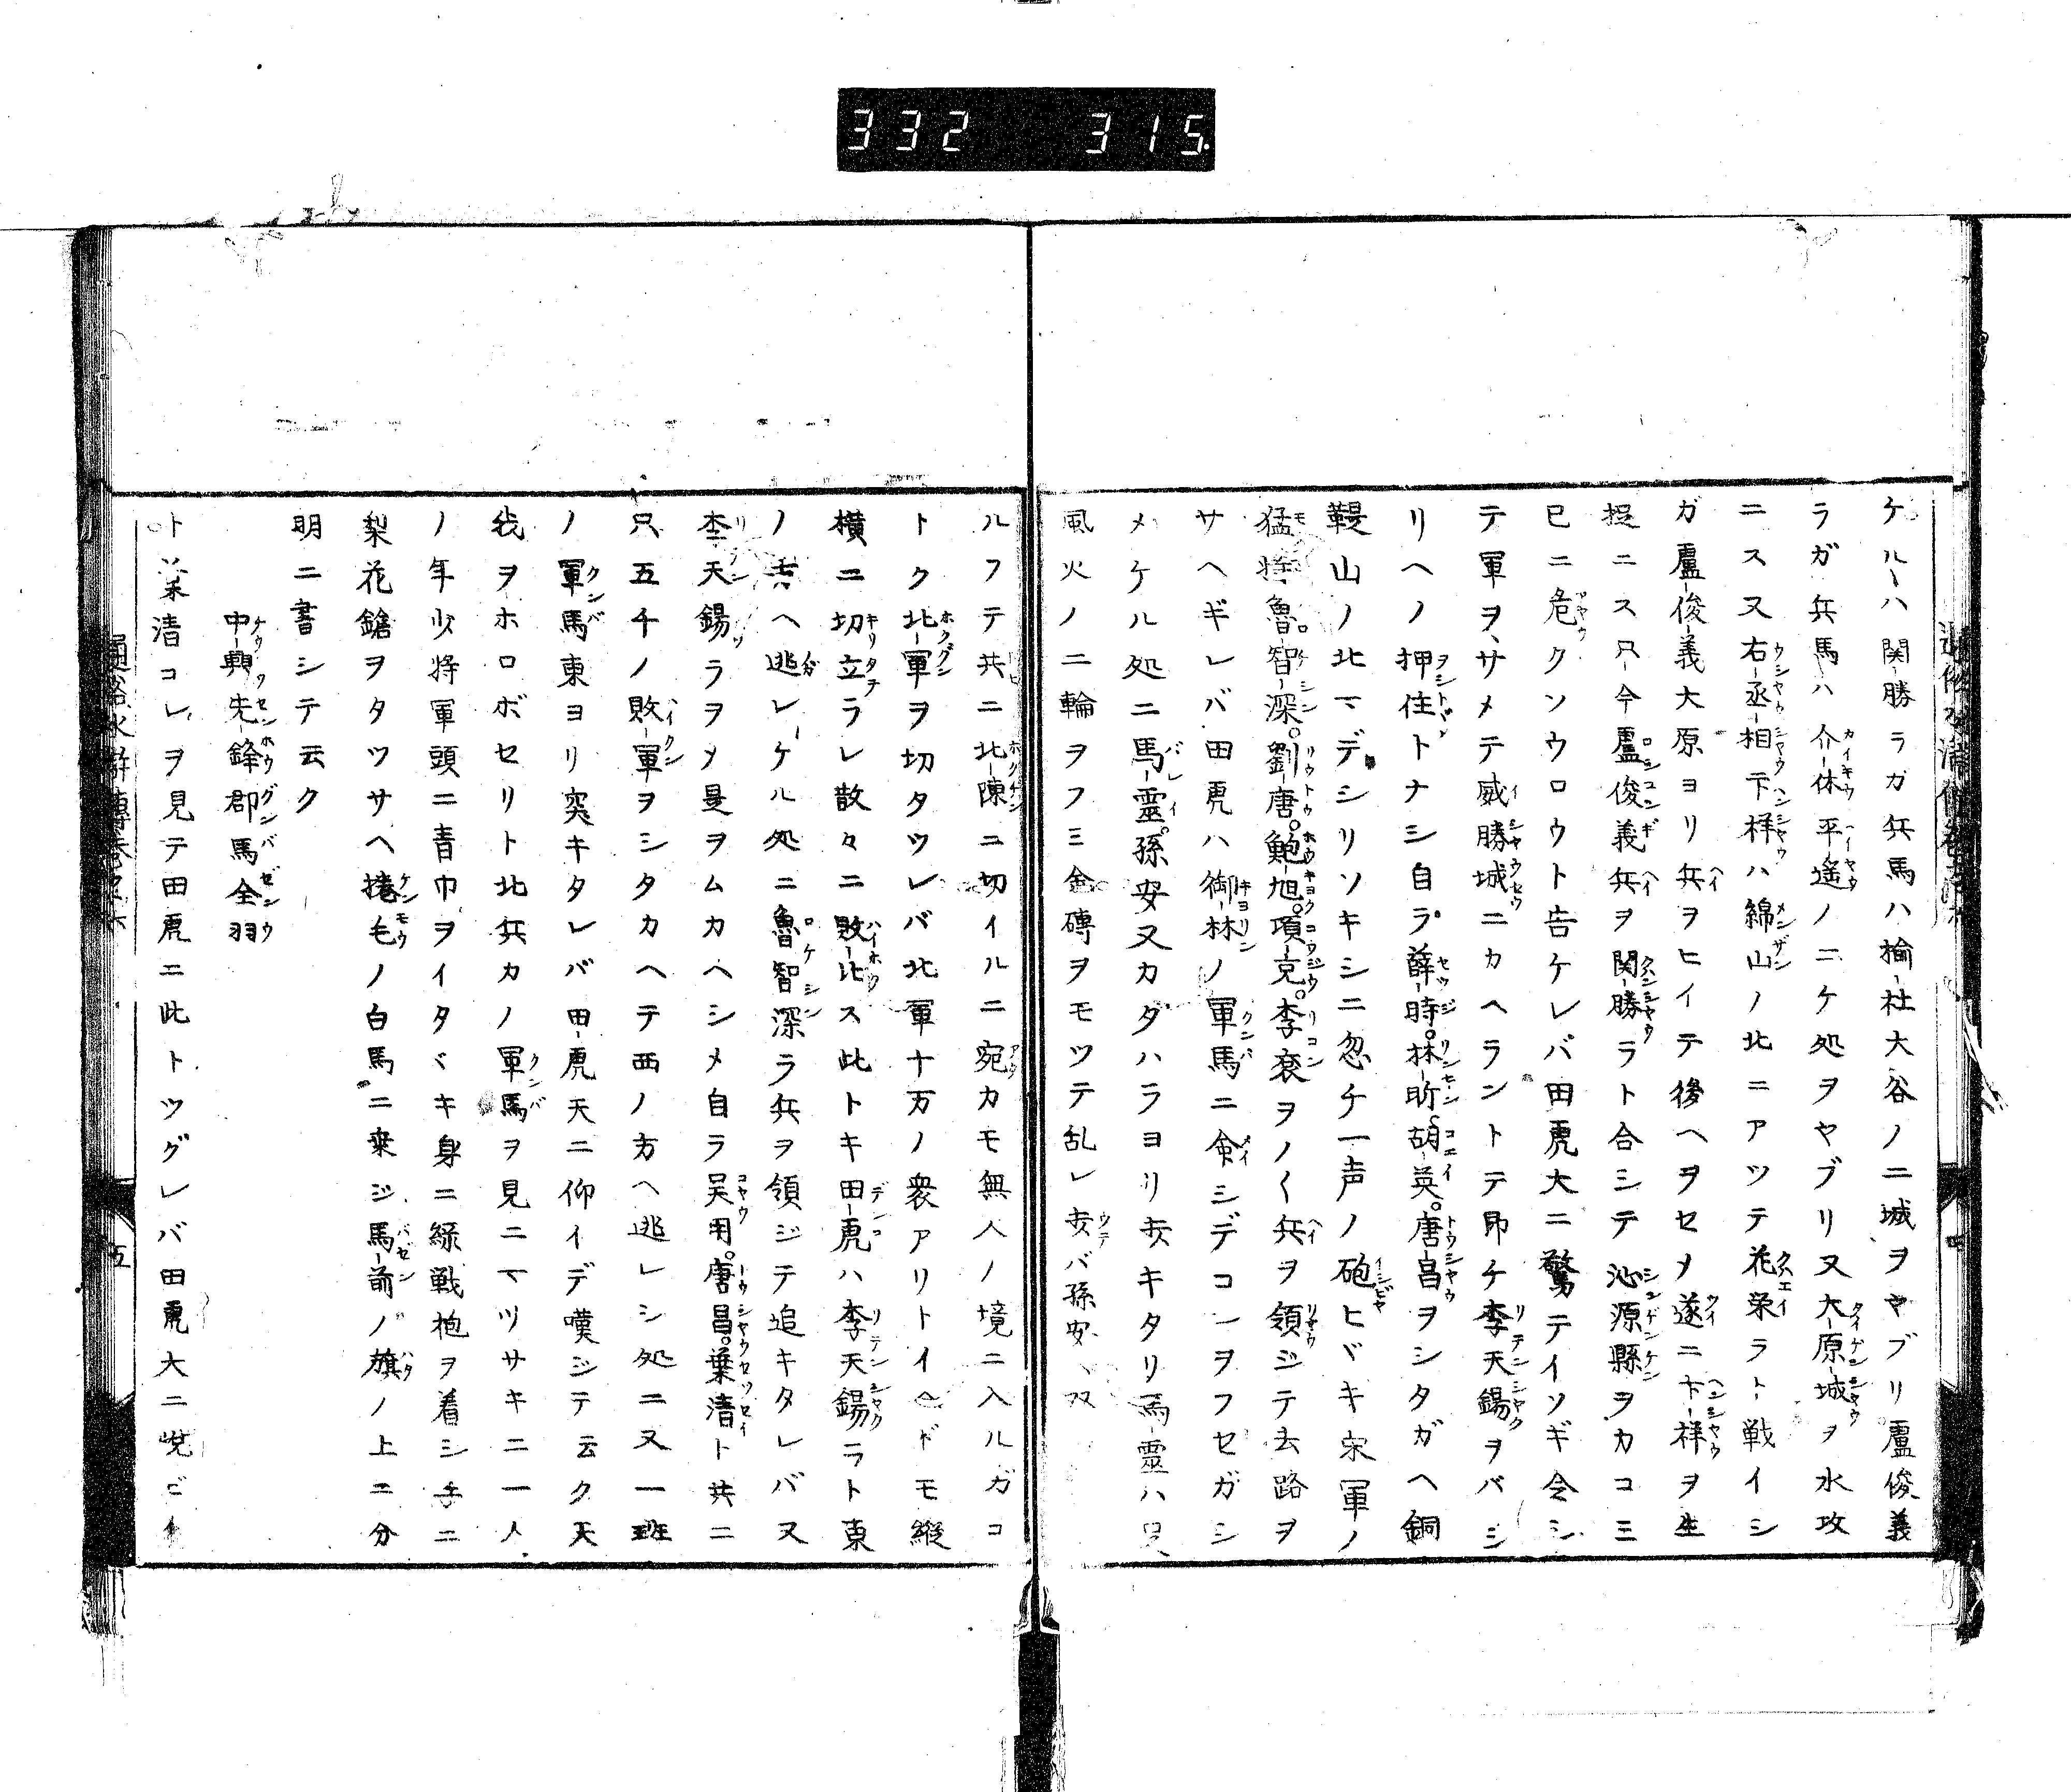 332 315
ケルハ関勝ラガ兵馬ハ楡社大谷ノ二城ヲヤブリ盧俊義
ラガ兵馬ハ介休平遙ノ二ケ処ヲヤブリ又大原城ヲ水攻
ニス又右丞相卞祥ハ綿山ノ北ニアツテ花栄ラト戦イシ
ガ盧俊義大原ヨリ兵ヲヒイテ後ヘヲセメ遂ニ卞祥ヲ生
捉ニス只今盧俊義兵ヲ関勝ラト合シテ沁源縣ヲカコミ
已ニ危クソウロウト告ケレバ田虎大ニ驚テイソギ令シ
テ軍ヲサメテ威勝城ニカヘラントテ即チ李天錫ヲバシ
リヘノ押住トナシ自ラ薛時。林昕。胡英。唐昌ヲシタガヘ銅
鞮山ノ北マデシリソキシニ忽チ一声ノ砲ヒヾキ宋軍ノ
猛将魯智深。劉唐。鮑旭。項充。李袞ヲノ〱兵ヲ領ジテ去路ヲ
サヘギレバ田虎ハ御林ノ軍馬ニ命シデコレヲフセガシ
メケル処ニ馬靈。孫安又カタハラヨリ攻キタリ馬靈ハ只
風火ノ二輪ヲフミ金磚ヲモツテ乱レ攻バ孫安ハ双
ルフテ共ニ北陳ニ切イルニ宛カモ無人ノ境ニ入ルガコ
トク北軍ヲ切タツレバ北軍十万ノ衆アリトイヘドモ縦
横ニ切立ラレ散々ニ敗北ス此トキ田虎ハ李天錫ラト東
ノ方ヘ逃レケル処ニ魯智深ラ兵ヲ領ジテ追キタレバ又
李天錫ラヲメ是ヲムカヘシメ自ラ吴用。唐昌。葉清ト共ニ
只五千ノ敗軍ヲシタカヘテ西ノ方ヘ逃レシ処ニ又一班
ノ軍馬東ヨリ突キタレバ田虎天ニ仰イデ嘆ジテ云ク天
我ヲホロボセリト北兵カノ軍馬ヲ見ニマツサキニ一人
ノ年少将軍頭ニ青巾ヲイタヾキ身ニ緑戦袍ヲ着シ手ニ
梨花鎗ヲタツサヘ捲毛ノ白馬ニ乗ジ馬前ノ旗ノ上ニ分
明ニ書シテ云ク
中興先鋒郡馬全羽
ト葉清コレヲ見テ田虎ニ此トツグレバ田虎大ニ悦ビ
五